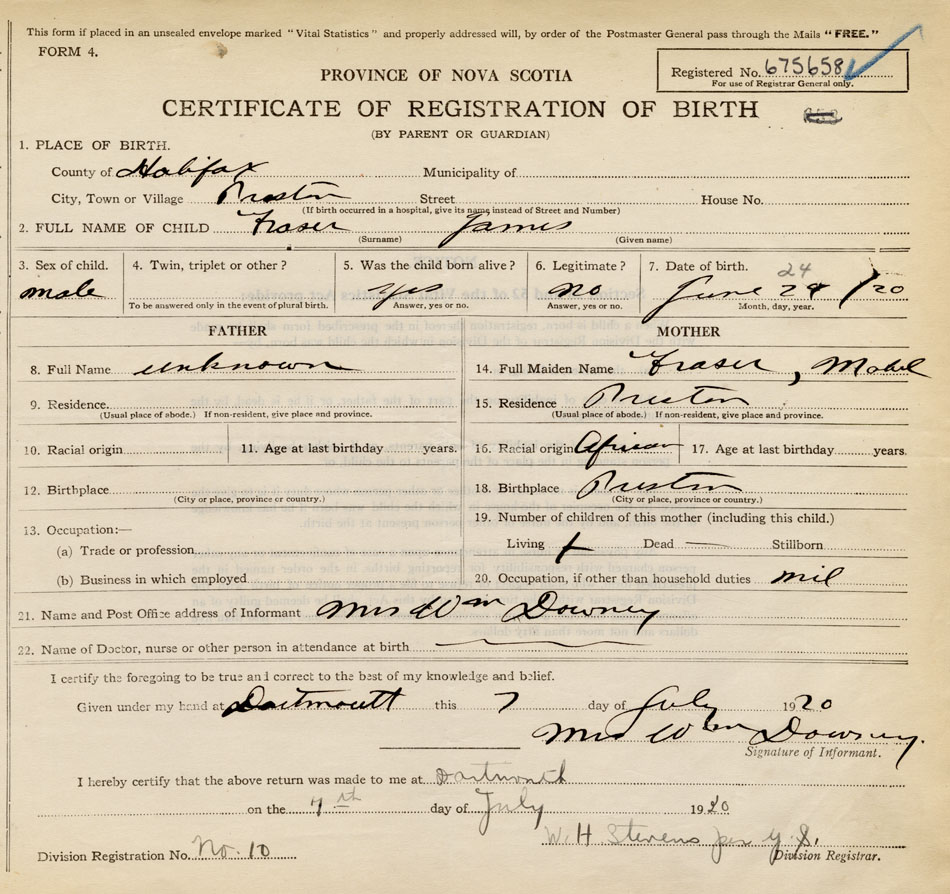 This form if placed in an unsealed envelope marked "Vital Statistics" and properly addressed will, by order of the Postmaster General pass through the Mails "FREE."
FORM 4.
Registered No. 675658
For use of Registrar General only.
PROVINCE OF NOVA SCOTIA
CERTIFICATE OF REGISTRATION OF BIRTH
(BY PARENT OR GUARDIAN)
1. PLACE OF BIRTH.
County of Halifax Municipality of
City, Town or Village Preston Street House No.
(If birth occurred in a hospital, give its name instead of Street and Number)
2. FULL NAME OF CHILD Fraser James
(Surname) (Given name)
3. Sex of child. 4. Twin, triplet or other? 5. Was the child born alive? 6. Legitimate? 7. Date of birth. 24
male yes no June 24 / 20
To be answered only in the event of plural birth. Answer, yes or no. Answer, yes or no. Month, day, year.
FATHER MOTHER
8. Full Name unknown 14. Full Maiden Name Fraser, Mabel
9. Residence. 15. Residence Preston
(Usual place of abode.) If non-resident, give place and province. (Usual place of abode.) If non-resident, give place and province.
10. Racial origin 11. Age at last birthday years. 16. Racial origin African 17. Age at last birthday years.
12. Birthplace 18. Birthplace Preston
(City or place, province or country.) (City or place, province or country.)
13. Occupation:— 19. Number of children of this mother (including this child.)
(a) Trade or profession Living Dead — Stillborn
(b) Business in which employed 20. Occupation, if other than household duties nil
21. Name and Post Office address of Informant Mrs Wm Downey
22. Name of Doctor, nurse or other person in attendance at birth
I certify the foregoing to be true and correct to the best of my knowledge and belief.
Given under my hand at Dartmouth this 7 day of July 1920
Mrs Wm Downey.
Signature of Informant.
I hereby certify that the above return was made to me at Dartmouth
on the 7th day of July 1920
W. H Stevens per G. S.
Division Registration No. No. 10 Division Registrar.